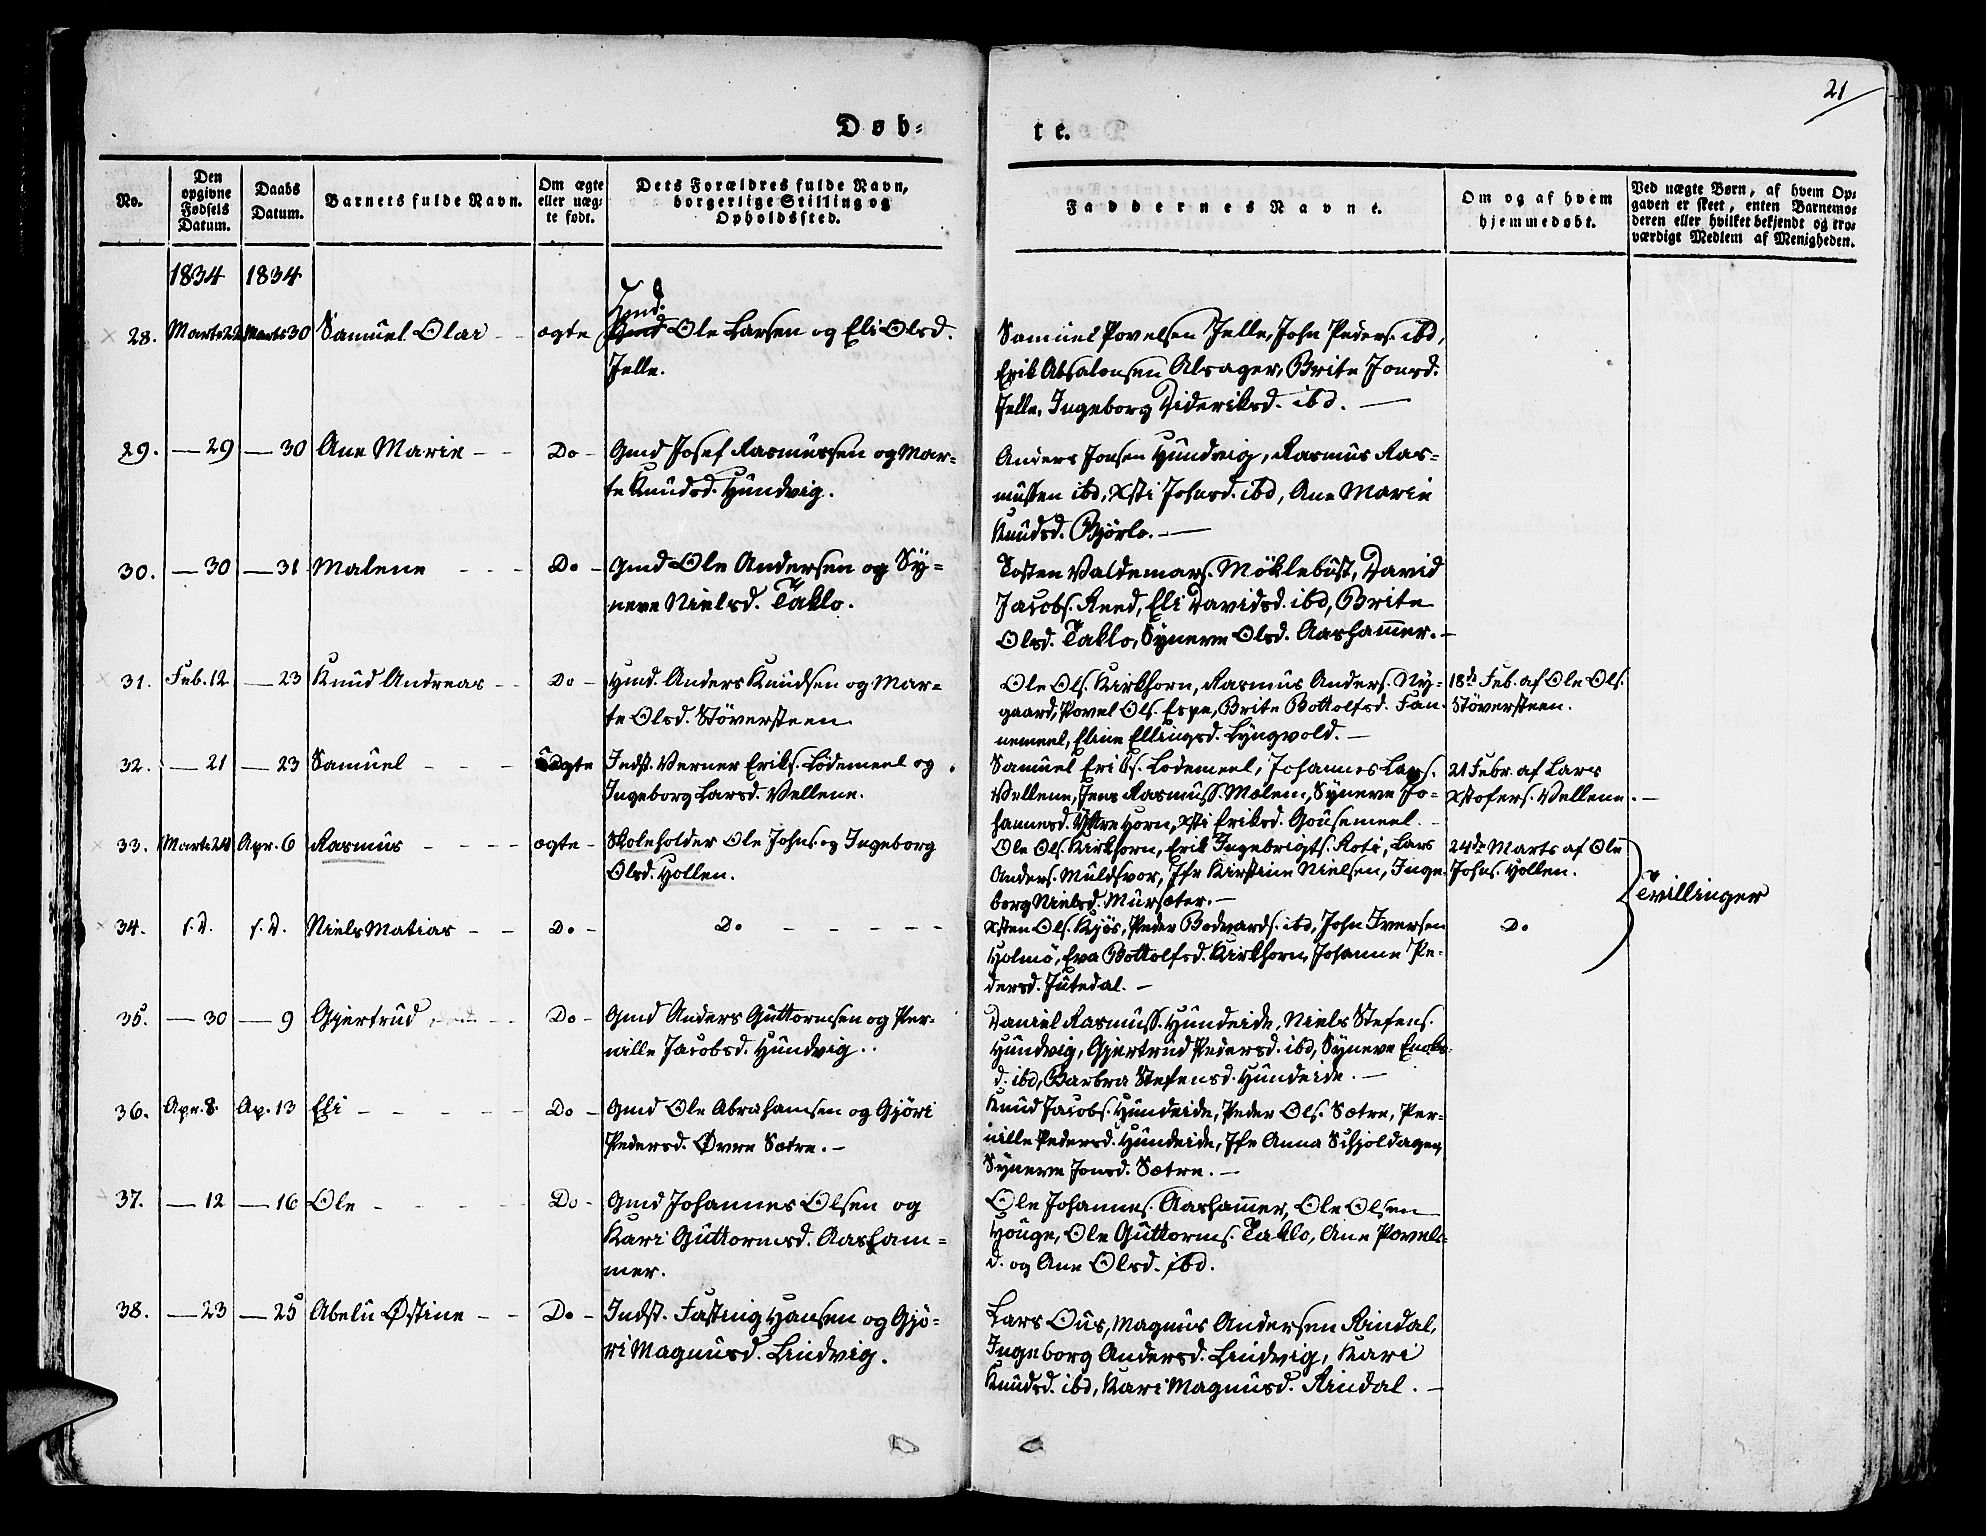 21
Døb-
te.
No.
Den opgivne Fødsels Datum.
Daabs Datum.
Barnets fulde Navn.
Om ægte eller uæg-te født.
Dets Forældres fulde Navn, borgerlige Stilling og Opholdssted.
Faddernes Navne.
Om og af hvem hjemmedøbt.
Ved uægte Børn, af hvem Op-gaven er skeet, enten Barnemo-deren eller hvilket bekjendt og tro-værdigt Medlem af Menigheden.
1834 1834
28. Marts 22 Marts 30 Samuel Olai - - ægte Hmd. Ole Larsen og Eli Olsd.
Jelle.
Samuel Povelsen Jelle, John Peders. ibd,
Erik Absalonsen Alsager, Brite Jonsd.
Jelle, Ingeborg Dideriksd. ibd. —
29. — 29 — 30 Ane Marie - - Do - Gmd Josef Rasmussen og Mar-
te Knudsd. Hundvig.
Anders Jonsen Hundvig, Rasmus Ras-
mussen ibd, Xsti Johnsd. ibd, Ane Marie
Knudsd. Bjørlo. —
30. — 30 — 31 Malene - - - Do - Gmd Ole Andersen og Sy-
neve Nielsd. Taklo.
Tosten Valdemars. Möklebust, David
Jacobs. Reed, Eli Davidsd. ibd, Brite
Olsd. Taklo, Syneve Olsd. Aashamer. -
31. Feb. 12 — 23 Knud Andreas - - Do - Hmd. Anders Knudsen og Mar-
te Olsd. Störersteen.
Ole Ols. Kirkhorn, Rasmus Anders. Ny-
gaard, Povel Ols. Espe, Brite Bottolfsd. Fan-
nemeel, Eline Ellingsd. Lyngvold. —
18de Feb. af Ole Ols.
Störersteen.
32. — 21 — 23 Samuel - - - Uægte Indst. Verner Eriks. Lödemeel og
Ingeborg Larsd. Vellene.
Samuel Eriks. Lodemeel, Johannes Lars.
Vellene, Jens Rasmuss. Mælem, Syneve Jo-
hannesd. Yttre Horn, Xsti Eriksd. Gousemeel. -
21 Febr. af Lars
Xstofers. Vellene. —
33. Marts 24 Apr. 6 Rasmus - - - - ægte - Skoleholder Ole Johns. og Ingeborg
Olsd. Hollen.
Ole Ols. Kirkhorn, Erik Ingebrigts. Roti, Lars
Anders. Muldsvor, Jfr Kirstine Nielsen, Inge-
borg Nielsd. Mursæter. —
24de Marts af Ole
Johns. Hollen.
Tvillinger
34. s. D. s. D. Niels Matias - - Do - Do - - - - -
Xsten Ols. Kjös, Peder Bodvards. ibd, John Iversen
Holmö, Eva Bottolfsd. Kirkhorn, Johanne Pe-
dersd. Jutedal. —
Do
35. — 30 — 9 Gjertrud - - Do - Gmd Anders Guttormsen og Per-
nille Jacobsd. Hundvig.
Daniel Rasmuss. Hundeide, Niels Stefens.
Hundvig, Gjertrud Pedersd. ibd, Syneve Enoks-
d. ibd, Barbra Stefensd. Hundeide. —
36. Apr. 8. Ap. 13 Eli - - - - - Do - Gmd Ole Abrahamsen og Gjöri
Pedersd. Øvre Sætre. —
Knud Jacobs. Hundeide, Peder Ols. Sætre, Per-
nille Pedersd. Hundeide, Jfr Anna Schjoldager,
Syneve Jonsd. Sætre. —
37. — 12 — 16 Ole - - - - Do - Gmd Johannes Olsen og
Kari Guttormsd. Aasham-
mer.
Ole Johannes. Aashamer, Ole Olsen
Houge, Ole Guttorms. Taklo, Ane Povels-
d. og Ane Olsd. ibd.
38. — 23 — 25 Abelu Østine - - Do - Indst. Fasting Hansen og Gjö-
ri Magnusd. Lindvig.
Lars Ous, Magnus Andersen Rindal,
Ingeborg Andersd. Lindvig, Kari
Knudsd. ibd, Kari Magnusd. Rindal. —